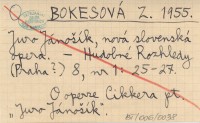 BOKESOVÁ Z. 1955.
Juro Jánošík, nová slovenská
opera. – Hudobné Rozhledy
(Praha) 8, nr 1: 25-27.
O operze Cikkera pt.
"Juro Janošik".